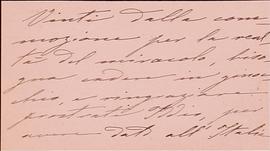 Vinti dalla com
mozione per la real
tà del miracolo, biso
gna cadere in ginoc
chio, e ringraziare
prostrati Iddio, per
avere dato all'Itali